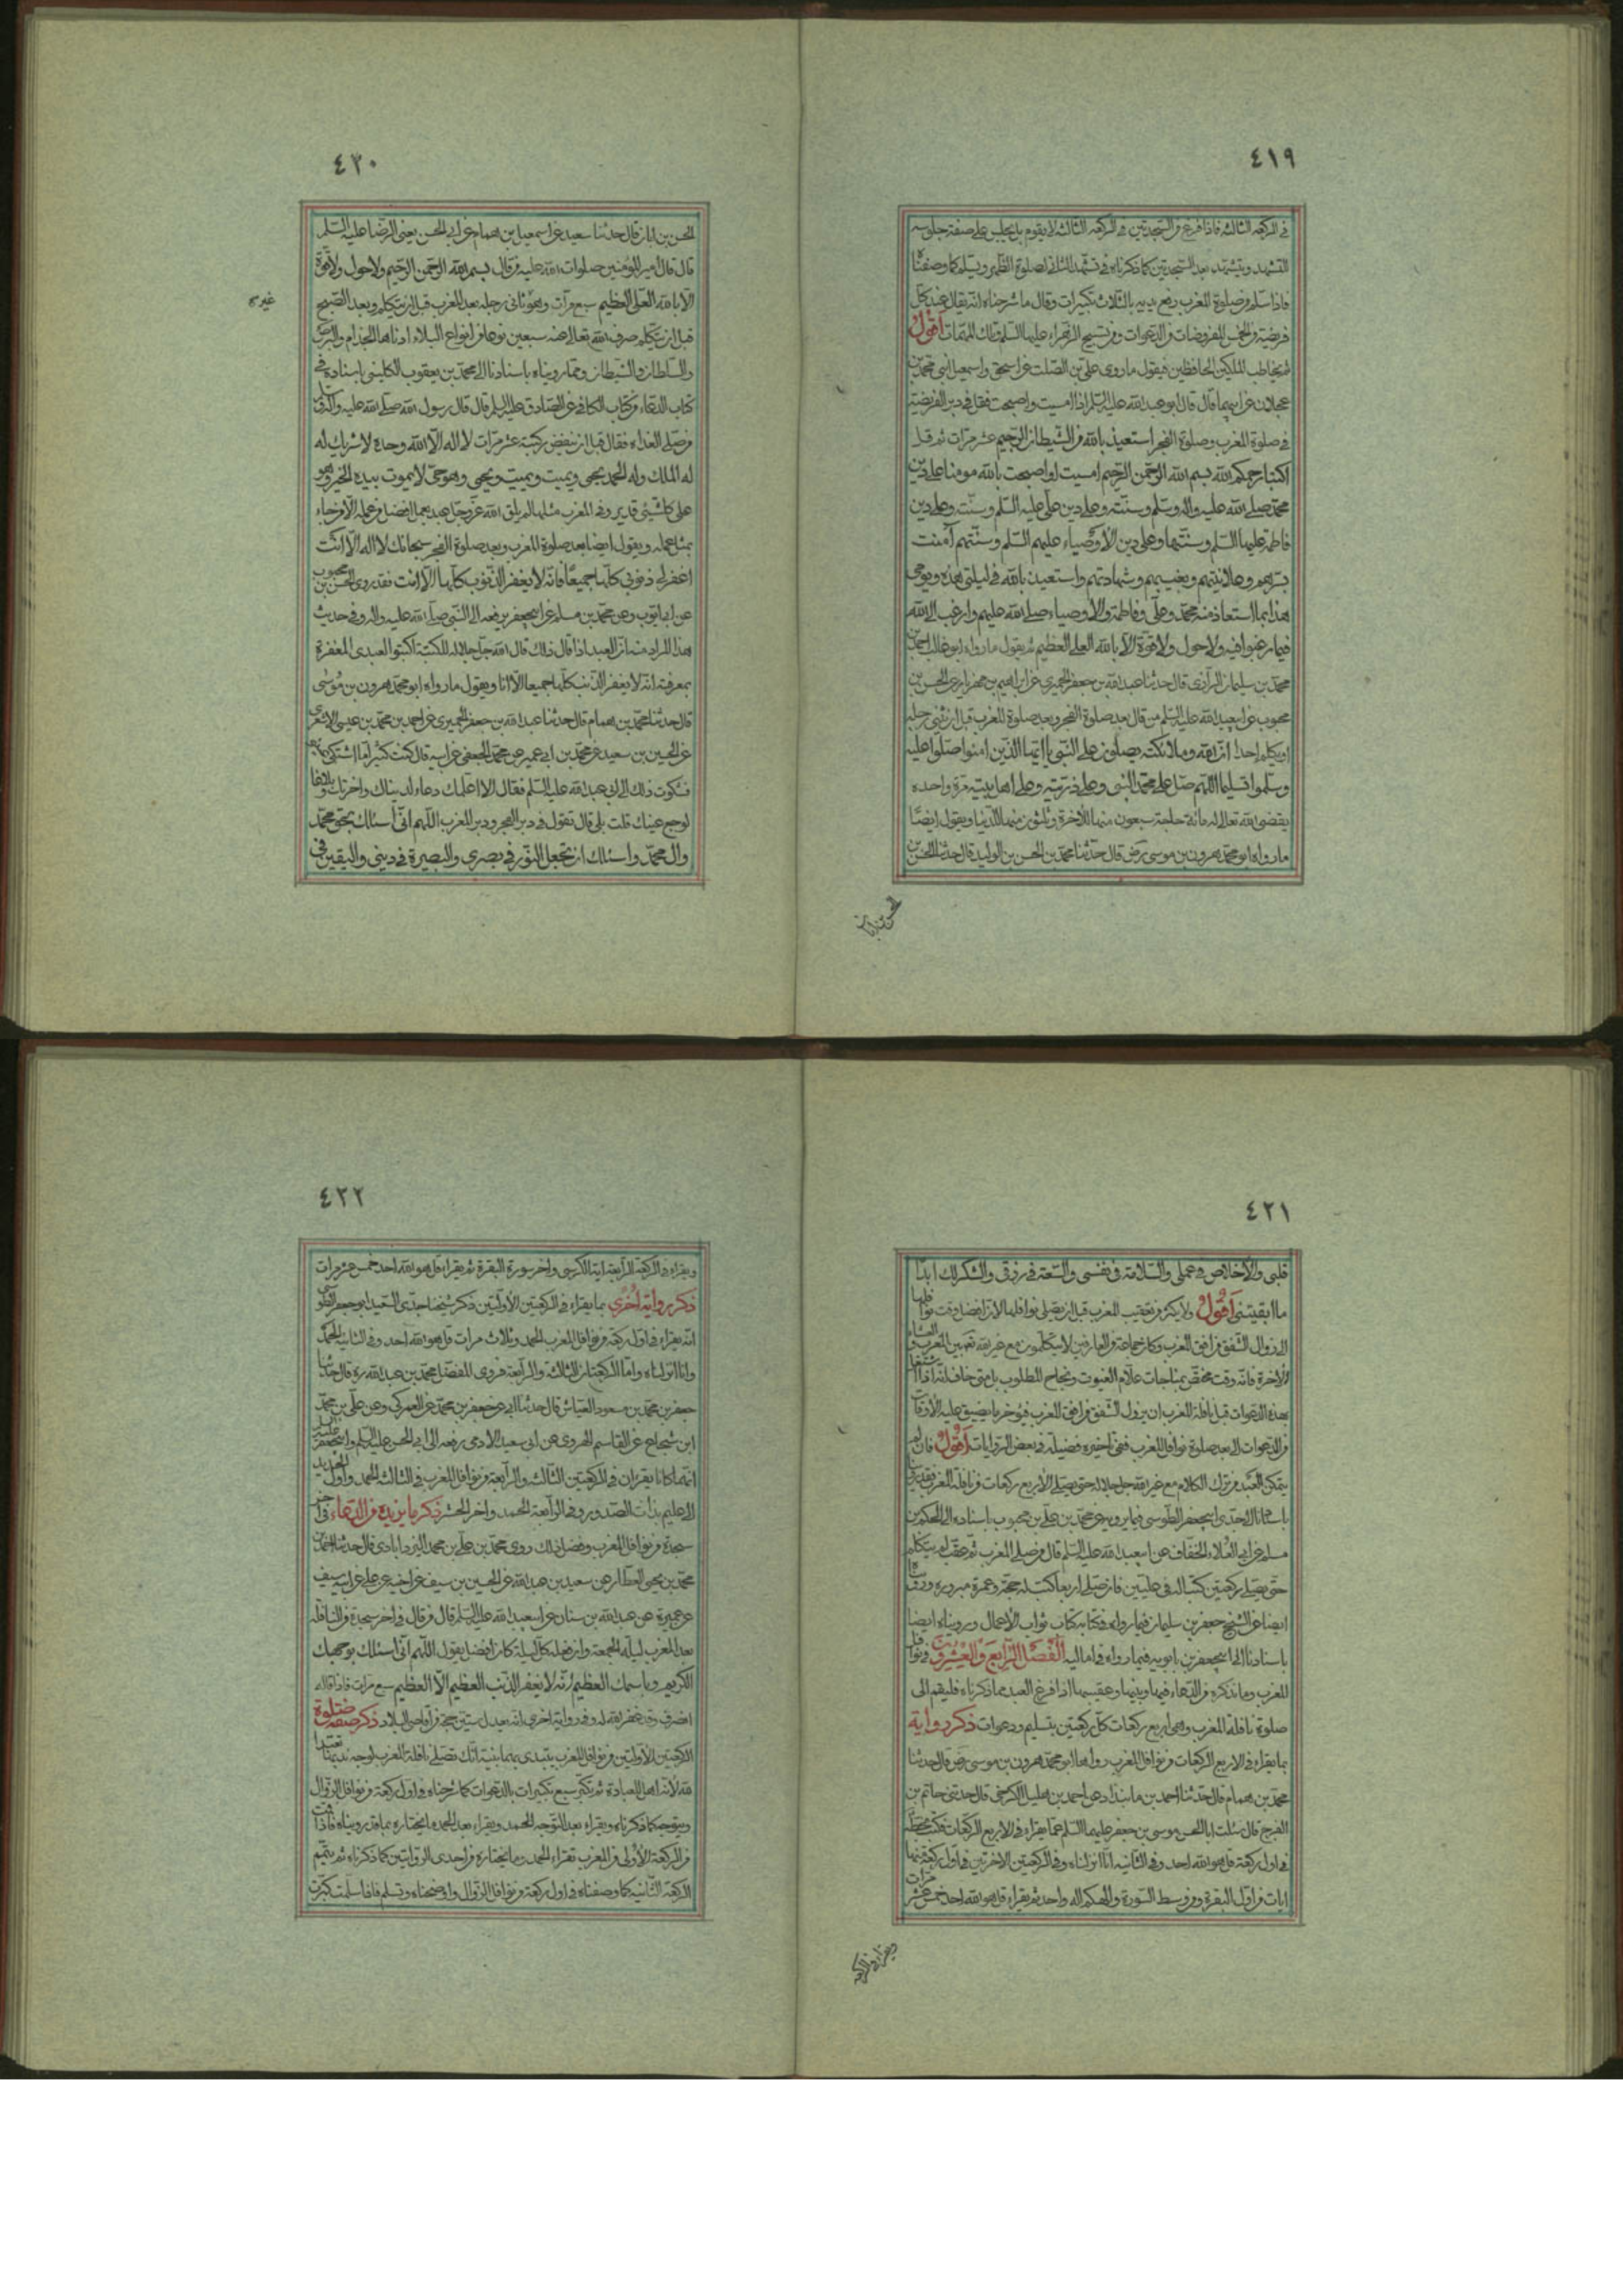 ٤١٩
في الركعة الثالثة فاذا فرغ من السجدتين في الركعة الثالثة لا يقوم بل يجلس على صفة جلوسه
للتشهد ويتشهد بعد السجدتين كما ذكرناه في تشهد الثاني لصلوة الظهر ويسلم كما وصفناه
فاذا سلم من صلوة المغرب رفع يديه بالثلاث تكبيرات وقال ما شرحناه انه يقال عند كل
فريضة من الخمس المفروضات من الدعوات ومن تسبيح الزهراء عليها السلم وتلك المهمات اقول
ثم يخاطب الملكين الحافظين فيقول ما روى علي بن الصلت عن اسحق واسمعيل ابني محمد بن
عجلان عن ابيهما قال قال ابو عبد الله عليه السلم اذا امسيت واصبحت فقل في دبر الفريضة
في صلوة المغرب وصلوة الفجر استعيذ بالله من الشيطان الرجيم عشر مرات ثم قل
اكتبا رحمكما الله بسم الله الرحمن الرحيم امسيت او اصبحت بالله مومنا على دين
محمد صلى الله عليه واله وسلم وسنته وعلى دين علي عليه السلم وسنته وعلى دين
فاطمة عليها السلم وسنتها وعلى دين الأوصياء عليهم السلم وسنتهم آمنت
بسرهم وعلانيتهم وبغيبهم وشهادتهم واستعيذ بالله في ليلتي هذه ويومي
هذا مما استعاذ منه محمد وعلي وفاطمة والاوصياء صلى الله عليهم وارغب الى الله
فيما رغبوا فيه ولا حول ولا قوة الا بالله العلي العظيم ثم يقول ما رواه ابو غالب احمد بن
محمد بن سليمان الرازي قال حدثنا عبد الله بن جعفر الحميري عن ابراهيم بن مهزيار عن الحسن بن
محبوب عن ابي عبد الله عليه السلم من قال بعد صلوة الفجر وبعد صلوة المغرب قبل ان يثني رجله
او يكلم احدا ان الله وملائكته يصلون على النبي يا ايها الذين امنوا صلوا عليه
وسلموا تسليما اللهم صل على محمد النبي وعلى ذريته وعلى اهل بيته مرة واحدة
يقضي الله تعالى له مائة حاجة سبعون منها للأخرة وثلثون منها للدنيا ويقول ايضا
ما رواه ابو محمد هرون بن موسى رض قال حدثنا محمد بن الحسن بن الوليد قال حدثنا الحسن بن
الحسن بن ابان
٤٢٠
الحسن بن ابان قال حدثنا سعيد عن اسمعيل بن همام عن ابي الحسن يعني الرضا عليه السلم
قال قال امير المؤمنين صلوات الله عليه من قال بسم الله الرحمن الرحيم ولا حول ولا قوة
الا بالله العلي العظيم سبع مرات وهو ثاني رجله بعد المغرب قبل ان يتكلم وبعد الصبح
قبل ان يتكلم صرف الله تعالى عنه سبعين نوعا من انواع البلاء ادناها الجذام والبرص
والسلطان والشيطان ومما رويناه باسنادنا الى محمد بن يعقوب الكليني باسناده في
كتاب الدعاء من كتاب الكافي عن الصادق عليه السلم قال قال رسول الله صلى الله عليه واله
من صلى الغداة فقال قبل ان ينفض ركبتيه عشر مرات لا اله الا الله وحده لا شريك له
له الملك وله الحمد يحيي ويميت ويميت ويحيي وهو حي لا يموت بيده الخير وهو
على كل شيئ قدير وفي المغرب مثلها لم يلق الله عز وجل عبد بعمل افضل من عمله الا من جاء
بمثل عمله ويقول ايضا بعد صلوة المغرب وبعد صلوة الفجر سبحانك لا اله الا انت
اغفر لي ذنوبي كلها جميعا فانه لا يغفر الذنوب كلها الا انت فقد روى الحسن بن محبوب
عن ابي ايوب وعن محمد بن مسلم عن ابي جعفر يرفعه الى النبي صلى الله عليه واله وفي حديث
هذا المراد منه ان العبد اذا قال ذلك قال الله جل جلاله للكتبة اكتبوا لعبدى المغفرة
بمعرفته انه لا يغفر الذنب كلها جميعا الا انا ويقول ما رواه ابو محمد هرون بن موسى
قال حدثنا محمد بن همام قال حدثنا عبد الله بن جعفر الحميري عن احمد بن محمد بن عيسى الاشعري
عن الحسين بن سعيد عن محمد بن ابي عمير عن محمد الجعفي عن ابيه قال كنت كثيرا ما اشتكي
فشكوت ذلك الى ابي عبد الله عليه السلم فقال الا اعلمك دعاء لدنياك واخرتك وبلاغا
لوجع عينك قلت بلى قال تقول في دبر الفجر ودبر المغرب اللهم اني اسئلك بحق محمد
وال محمد واسئلك ان تجعل النور في بصري والبصيرة في ديني واليقين في
٤٢١
قلبي والأخلاص في عملي والسلامة في نفسي والسعة في رزقي والشكر لك ابدا
ما ابقيتني اقول ولا يكثر من تعقيب المغرب قبل ان يصلى نوافلها لان افضل وقت نوافلها
الى زوال الشفق من افق المغرب وكان جماعة من العارفين لا يتكلمون مع غير الله تع بين المغرب والعشاء
الأخرة فانه وقت مختص بمناجات علام الغيوب ونجاح المطلوب بل متى خاف انه اذا اشتغل
بهذه الدعوات قبل نافلة المغرب ان يزول الشفق من افق المغرب فيؤخر ما يضيق عليه الأوقات
من الدعوات الى بعد صلوة نوافل المغرب ففي تاخيره فضيلة في بعض الروايات اقول فان لم
يتمكن العبد من ترك الكلام مع غير الله جل جلاله حتى يصلي الأربع ركعات من نافلة المغرب
باسنادنا الى جدى ابي جعفر الطوسي فيما يرويه عن محمد بن علي بن محبوب باسناده الى الحكم بن
مسلم عن ابي العلاء الخفاف عن ابي عبد الله عليه السلم قال من صلى المغرب ثم عقب لم يتكلم
حتى يصلي ركعتين كتبا له في عليين فان صلى اربعا كتبت له حجة وعمرة مبرورة وروينا
ايضا عن الشيخ جعفر بن سليمان فيما رواه في كتابه كتاب ثواب الأعمال ورويناه ايضا
باسنادنا الى ابي جعفر بن بابويه فيما رواه في اماليه الفصل الرابع والعشرون في نوافل
المغرب وما نذكره من الدعاء فيما بينها وعقيبها اذا فرغ العبد مما ذكرناه فليقم الى
صلوة نافلة المغرب وهي اربع ركعات كل ركعتين بتسليم ودعوات ذكر رواية
بما يقراء في الاربع الركعات من نوافل المغرب رواها ابو محمد هرون بن موسى رض قال حدثنا
محمد بن همام قال حدثنا احمد بن مابنداد عن احمد بن هليل الكرخي قال حدثني حاتم بن
الفرج قال سئلت ابا الحسن موسى بن جعفر عليهما السلم عما يقراء في الاربع الركعات فكتب بخطه
في اول ركعة قل هو الله احد وفي الثانية انا انزلناه وفي الركعتين الاخرتين في اول ركعة منها
ايات من اول البقرة ومن وسط السورة والهكم اله واحد ثم يقراء قل هو الله احد خمس عشر مرات
ويقراء في الركعة
٤٢٢
ويقراء في الركعة الرابعة اية الكرسي واخر سورة البقرة ثم يقراء قل هو الله احد خمس عشر مرات
ذكر رواية اخرى بما يقراء في الركعتين الأولتين ذكر شيخنا جدى السعيد ابو جعفر الطوسي
انه يقراء في اول ركعة من نوافل المغرب الحمد وثلاث مرات قل هو الله احد وفي الثانية الحمد
وانا انزلناه واما الركعتان الثالثة والرابعة فروى المفضل محمد بن عبد الله ره قال حدثنا
جعفر بن محمد بن مسعود العياش قال حدثنا ابي عن جعفر بن محمد عن العمركي وعن علي بن محمد
ابن شجاع عن القاسم الهروي عن ابي سعيد الادمي رفعه الى ابي الحسن عليه السلم وابي جعفر
انهما كانا يقرءان في الركعتين الثالثة والرابعة من نوافل المغرب في الثالثة الحمد واول الحديد
الى عليم بذات الصدور وفي الرابعة الحمد واخر الحشر ذكر ما يزيده من الدعاء في اخر
سجدة من نوافل المغرب وفضل ذلك روى محمد بن علي بن محمد اليزدابادي قال حدثنا احمد بن
محمد بن يحيى العطار عن سعيد بن عبد الله عن الحسين بن سيف عن اخيه عن علي عن ابيه سيف
عن عميرة عن عبد الله بن سنان عن ابي عبد الله عليه السلم قال من قال في اخر سجدة من النافلة
بعد المغرب ليلة الجمعة وان فعله كل ليلة كان افضل يقول اللهم اني اسئلك بوجهك
الكريم وباسمك العظيم انه لا يغفر الذنب العظيم الا العظيم سبع مرات فاذا قاله
انصرف وقد غفر الله له وفي رواية اخرى انه يعدل ستين حجة من اقاصى البلاد ذكر صفة صلوة
الركعتين الأولتين من نوافل المغرب يبتدى بهما بنية انك تصلى نافلة المغرب لوجه ندبها تعبدا
لله لأنه اهل للعبادة ثم تكبر سبع تكبيرات بالدعوات كما شرحناه في اول ركعة من نوافل الزوال
ويتوجه كما ذكرناه ويقراء بعد التوجه الحمد ويقراء بعد الحمد ما يختاره مما قد رويناه فاذا
من الركعة الأولى من المغرب تقراء الحمد وما يختاره من احدى الروايتين كما ذكرناه ثم يتمم
الركعة الثانية كما وصفناه في اول ركعة من نوافل الزوال واوضحناه وتسلم فاذا سلمت كبرت